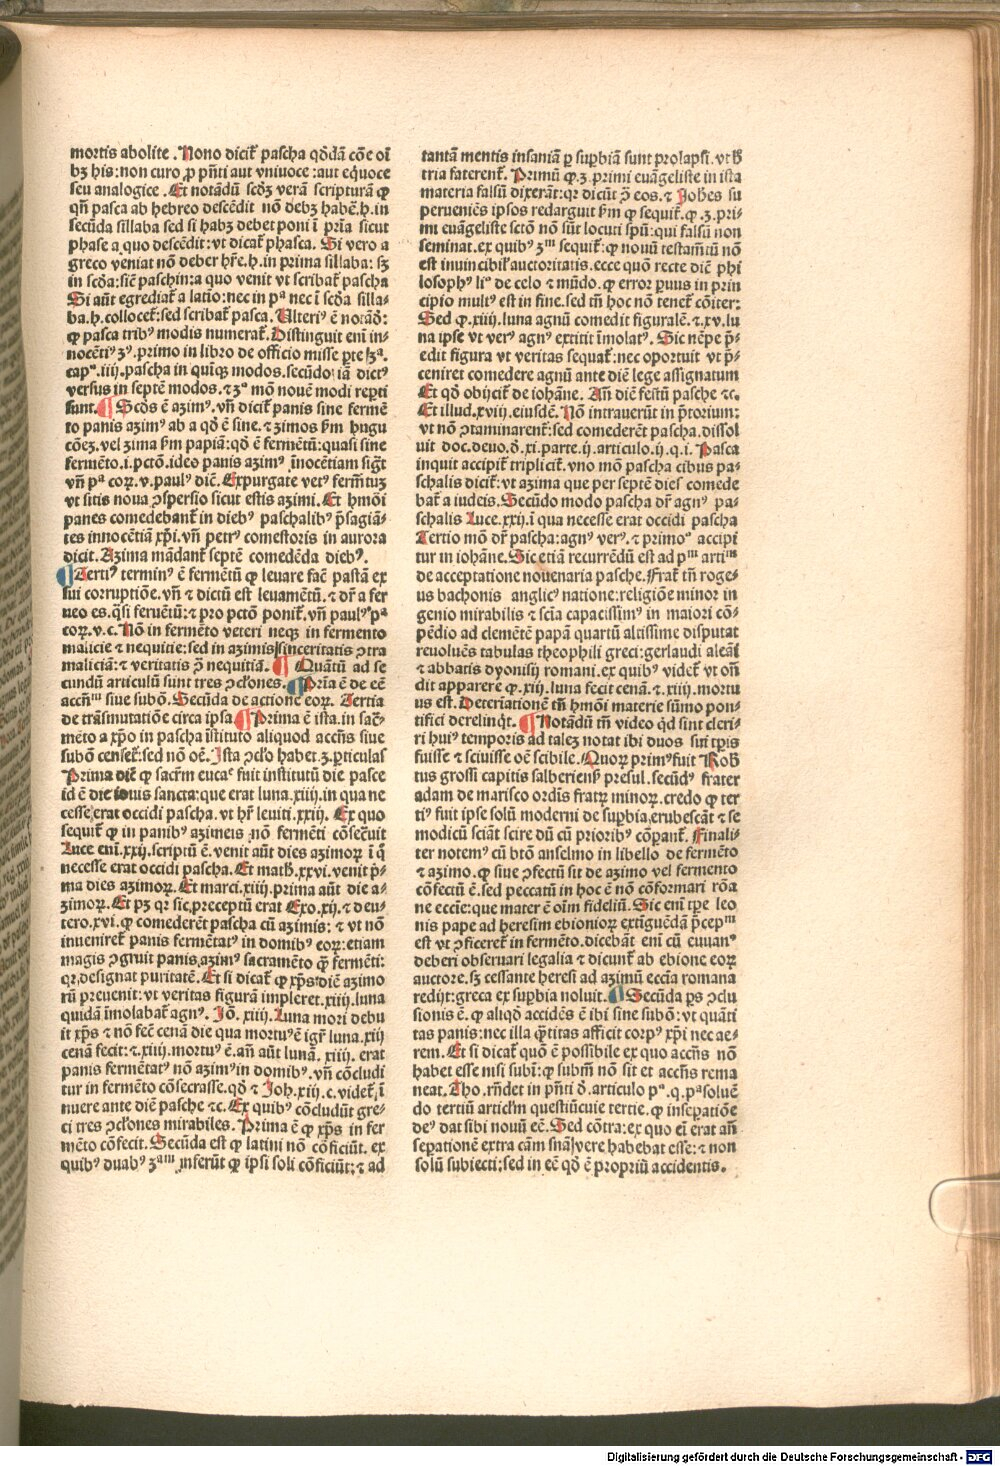 mortis abolite. Nono dicit̃ pascha qḋdã cõe oĩ
bꝫ his: non curo ꝓ p̃nti aut vniuoce: aut eq̃uoce
seu analogice. Et notãdũ scḋꝫ verã scripturã ꝙ
qñ pasca ab hebreo descẽdit nõ debꝫ habẽ.h. in
secũda sillaba sed si habꝫ debet poni ĩ pria sicut
phase a quo descẽdit: vt dicat̃ phasca. Si vero a
greco veniat nõ debet hr̃e.h. in prima sillaba: sꝫ
in scḋa: siẽ paschin: a quo venit vt scribat̃ pascha
Si aũt egrediat̃ a latio: nec in pᵃ nec ĩ scḋa silla⸗
ba.h. collocet̃: sed scribat̃ pasca. Ulteriꝰ ẽ notãḋ:
ꝙ pasca tribꝰ modis numerat̃. Distinguit eni in⸗
nocẽtiꝰ ꝫꝰ. primo in libro de officio misse ꝑte ꝫᵃ.
capᵒ. iiij. pascha in quiqꝫ modos. secũdo iã dictꝰ
versus in septẽ modos. ⁊ ꝫᵒ mõ nouẽ modi reꝑti
sunt. Scḋs ẽ azimꝰ. vñ dicit̃ panis sine fermẽ
to panis azimꝰ ab a qḋ ẽ sine. ⁊ zimos ẜm hugu
cõeꝫ. vel zima ẜm papiã: qḋ ẽ fermẽtũ: quasi sine
fermẽto.i. pctõ. ideo panis azimꝰ inocẽtiam sigt̃
vñ pᵃ coꝝ. v. paulꝰ diẽ. Expurgate vetꝰ ferm̃tuꝫ
vt sitis noua ꝯspersio sicut estis azimi. Et hmõi
panes comedebant̃ in diebꝰ paschalibꝰ p̃sagiã⸗
tes innocẽtiã xp̃i. vñ petrꝰ comestoris in aurora
dicit. Azima mãdant̃ septẽ comedẽda diebꝰ.
Tertiꝰ terminꝰ ẽ fermẽtũ ꝙ leuare fac̃ pastã ex
sui corruptiõe. vñ ⁊ dictũ est leuamẽtũ. ⁊ dr̃ a fer
ueo es. q̃si feruẽtũ: ⁊ pro pctõ ponit̃. vñ paulꝰ pᵃ
coꝝ. v. c. Nõ in fermẽto veteri neqꝫ in fermento
malicie ⁊ nequitie: sed in azimis sinceritatis ꝯtra
maliciã: ⁊ veritatis ꝯ̃ nequitiã. Quãtũ ad se
cundũ articulũ sunt tres ꝯclones. Pria ẽ de eẽ
accñᵐ siue subõ. Secũda de actione eoꝝ. Tertia
de trãsmutatiõe circa ipsa. Prima ẽ ista. in sac̃⸗
mẽto a xp̃o in pascha ĩstituto aliquod accñs siue
subõ censet̃: sed nõ oẽ. Ista ꝯclo habet.ꝫ. ꝑticulas
Prima diẽ ꝙ sacr̃m eucaᵉ fuit institutũ die pasce
id ẽ die iouis sancta: que erat luna. xiiij. in qua ne
cesse erat occidi pascha. vt hr̃ leuiti. xxij. Ex quo
sequit̃ ꝙ in panibꝰ azimeis nõ fermẽti cõsec̃uit
Luce eni. xxij. scriptũ ẽ. venit aũt dies azimoꝝ ĩ q̃
necesse erat occidi pascha. Et math̃. xxvi. venit p̃⸗
ma dies azimoꝝ. Et marci. xiiij. prima aũt die a⸗
zimoꝝ. Et pꝫ qꝛ sic p̃ceptũ erat Exo. xij. ⁊ deu⸗
tero. xvi. ꝙ comederẽt pascha cũ azimis: ⁊ vt nõ
inueniret̃ panis fermẽtatꝰ in domibꝰ eoꝝ: etiam
magis ꝯgruit panis azimꝰ sacramẽto q̃ fermẽti:
qꝛ designat puritatẽ. Et si dicat̃ ꝙ xp̃s diẽ azimo
rũ preuenit: vt veritas figurã impleret. xiiij. luna
quidã imolabat̃ agnꝰ. Jõ. xiij. Luna mori debu
it xp̃s ⁊ nõ fec̃ cenã die qua mortuꝰ ẽ igr̃ luna. xij
cenã fecit: ⁊. xiij. mortuꝰ ẽ. añ aũt lunã. xiiij. erat
panis fermẽtatꝰ nõ azimꝰ in domibꝰ. vñ cõcludi
tur in fermẽto cõsecrasse. qḋ ⁊ Joh. xiij. c. videt̃ ĩ
nuere ante diẽ pasche ⁊c. Ex quibꝰ cõcludũt gre⸗
ci tres ꝯclones mirabiles. Prima ẽ ꝙ xp̃s in fer
mẽto cõfecit. Secũda est ꝙ latini nõ cõficiũt. ex
quibꝰ duabꝰ ꝫᵃᵐ inferũt ꝙ ipsi soli cõficiũt: ⁊ ad
tantã mentis insaniã ꝑ suꝑbiã sunt prolapsi. vt ħ
tria faterent̃. Primũ ꝙ.ꝫ. primi euãgeliste in ista
materia falsũ dixerãt: qꝛ dicũt ꝯ̃ eos. ⁊ Johes su
perueniẽs ipsos redarguit ẜm ꝙ sequit̃. ꝙ.ꝫ. pri⸗
mi euãgeliste sctõ nõ sũt locuti spũ: qui falsũ non
seminat. ex quibꝰ ꝫᵐ sequit̃: ꝙ nouũ testam̃tũ nõ
est inuincibiľ auctoritatis. ecce quõ recte diẽ phi
losophꝰ liᵒ de celo ⁊ mũdo. ꝙ error ꝑuus in prin
cipio multꝰ est in fine. sed tñ hoc nõ tenet̃ cõiter:
Sed ꝙ. xiiij. luna agnũ comedit figuralẽ. ⁊. xv. lu
na ipse vt verꝰ agnꝰ extitit ĩmolatꝰ. Sic nẽpe p̃⸗
edit figura vt veritas sequat̃: nec oportuit vt p̃⸗
ceniret comedere agnũ ante diẽ lege assignatum
Et qḋ obijcit̃ de iohãne. Añ diẽ festũ pasche ⁊c.
Et illud. xvij. eiusdẽ. Nõ intrauerũt in p̃torium:
vt nõ ꝯtaminarent̃: sed comederẽt pascha. dissol
uit doc. deuo. ḋ. xi. parte. ij. articulo. ij. q. i. Pasca
inquit accipit̃ triplicit̃. vno mõ pascha cibus pa⸗
schalis dicit̃: vt azima que per septẽ dies comede
bat̃ a iudeis. Secũdo modo pascha dr̃ agnꝰ pa⸗
schalis Luce. xxij. ĩ qua necesse erat occidi pascha
Tertio mõ dr̃ pascha: agnꝰ verꝰ. ⁊ primoᵒ accipi
tur in iohãne. Sic etiã recurrẽdũ est ad pᵐ artiᵐ
de acceptatione nouenaria pasche. Frat̃ tñ roge⸗
us bachonis anglicꝰ natione: religiõe minor in
genio mirabilis ⁊ scĩa capacissimꝰ in maiori cõ⸗
pẽdio ad clemẽtẽ papã quartũ altissime disputat
reuoluẽs tabulas theophili greci: gerlaudi aleãĩ
⁊ abbatis dyonisij romani. ex quibꝰ videt̃ vt oñ
dit apparere ꝙ. xij. luna fecit cenã. ⁊. xiij. mortu
us est. Deteriatione tñ hmõi materie sũmo pon⸗
tifici derelinqt̃. Notãdũ tñ video qḋ sint cleri⸗
ri huiꝰ temporis ad taleꝫ notat ibi duos sui tp̃is
fuisse ⁊ sciuisse oẽ scibile. Quoꝝ primꝰ fuit Rob̃
tus grossi capitis salberienẜ presul. secũdꝰ frater
adam de marisco ordĩs fratꝝ minoꝝ. credo ꝙ ter
tiꝰ fuit ipse solũ moderni de suꝑbia erubescãt ⁊ se
modicũ sciãt scire dũ cũ prioribꝰ cõꝑant̃. Finali⸗
ter notemꝰ cũ btõ anselmo in libello de fermẽto
⁊ azimo. ꝙ siue ꝯfectũ sit de azimo vel fermento
cõfectũ ẽ. sed peccatũ in hoc ẽ nõ cõformari rõa
ne eccĩe: que mater ẽ oim fideliũ. Sic eni tpe leo
nis pape ad heresim ebionioꝝ extiguẽdã p̃cepᵐ
est vt ꝯficeret̃ in fermẽto. dicebãt eni cũ euuanᵒ
deberi obseruari legalia ⁊ dicunt̃ ab ebione eoꝝ
auctore. sꝫ cessante heresi ad azimũ eccĩa romana
redijt: greca ex suꝑbia noluit. Secũda ꝑs ꝯclu
sionis ẽ. ꝙ aliqḋ accidẽs ẽ ibi sine subõ: vt quãti
tas panis: nec illa q̃titas afficit corpꝰ xp̃i nec ae⸗
rem. Et si dicat̃ quõ ẽ possibile ex quo accñs nõ
habet esse nisi subĩ: ꝙ subm̃ nõ sit et accñs rema
neat. Tho. rñdet in p̃nti ḋ. articulo pᵒ. q. pᵃ soluẽ
do tertiũ articľm questiũcuie tertie. ꝙ inseꝑatiõe
deꝰ dat sibi nouũ eẽ. Sed cõtra: ex quo ei erat añ
seꝑationẽ extra cãm suã vere habebat esse: ⁊ non
solũ subiecti: sed in eẽ qḋ ẽ propriũ accidentis.
Digitalisierung gefördert durch die Deutsche Forschungsgemeinschaft - DFG